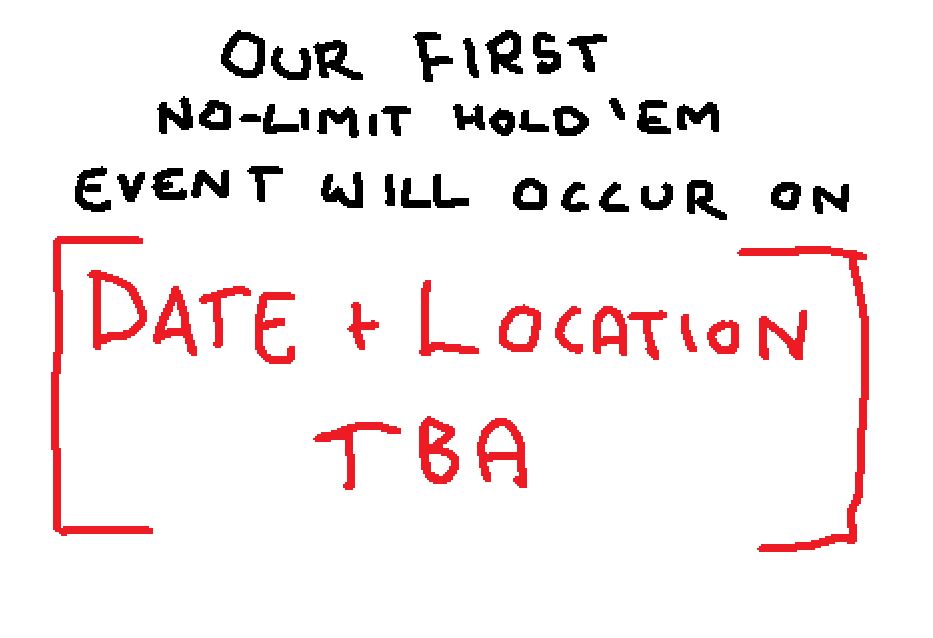 OUR FIRST
NO-LIMIT HOLD 'EM
EVENT WILL OCCUR ON
[DATE + LOCATION
TBA]